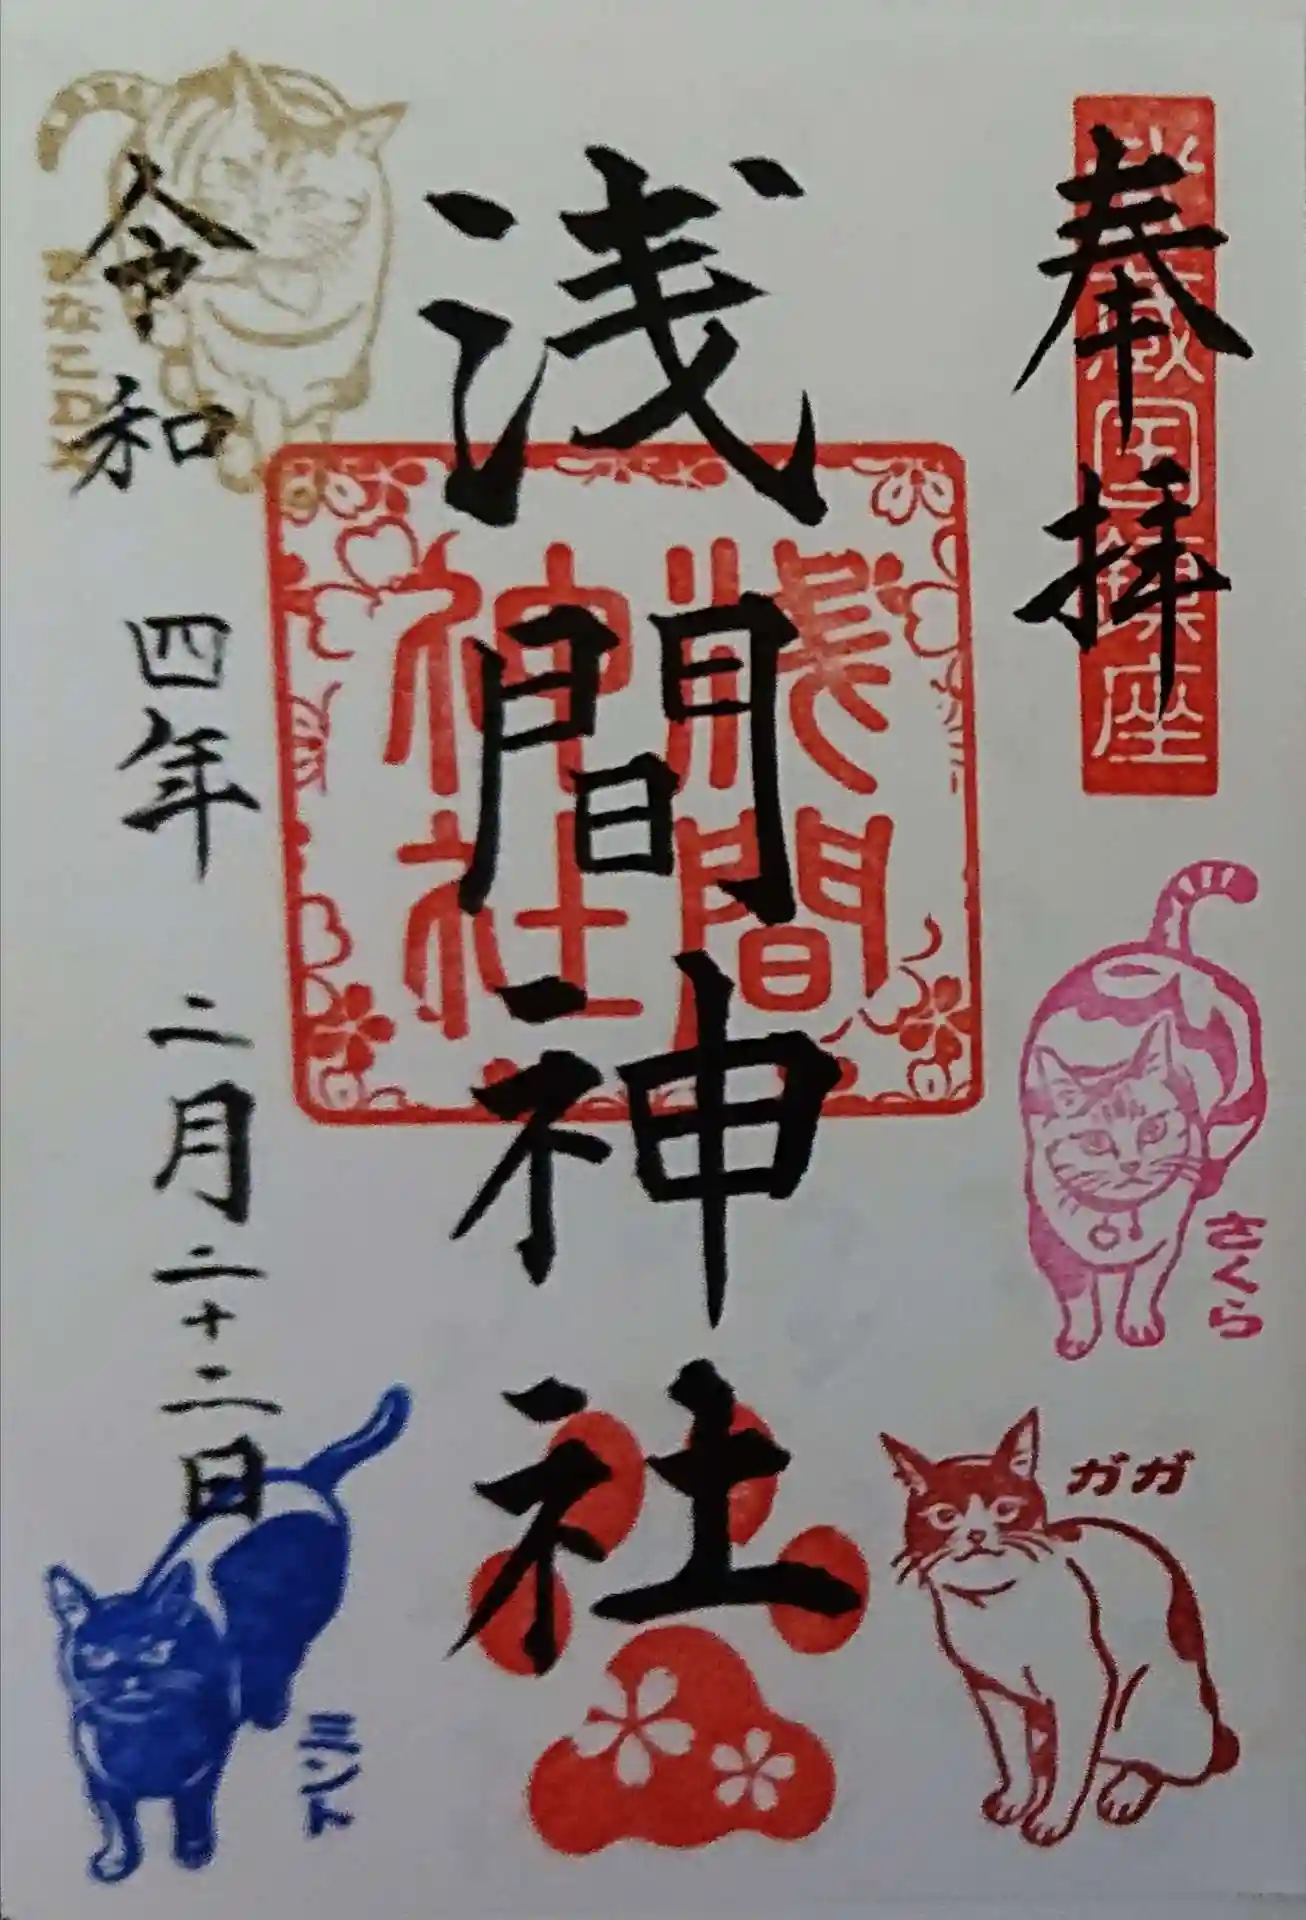 奉拝
武蔵国鎮座
浅間神社
浅間
神社
令和四年二月二十二日
さくら
ガガ
ミント